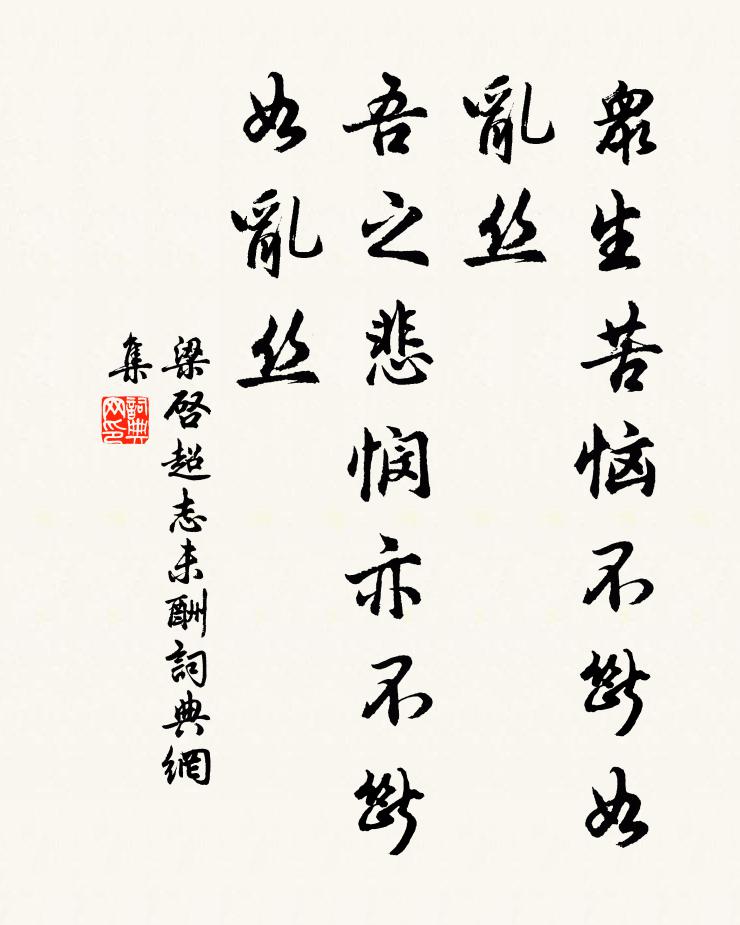 眾生苦惱不斷如
亂絲
吾之悲憫亦不斷
如亂絲
梁啓超志未酬詞典網
集
詞典
網印